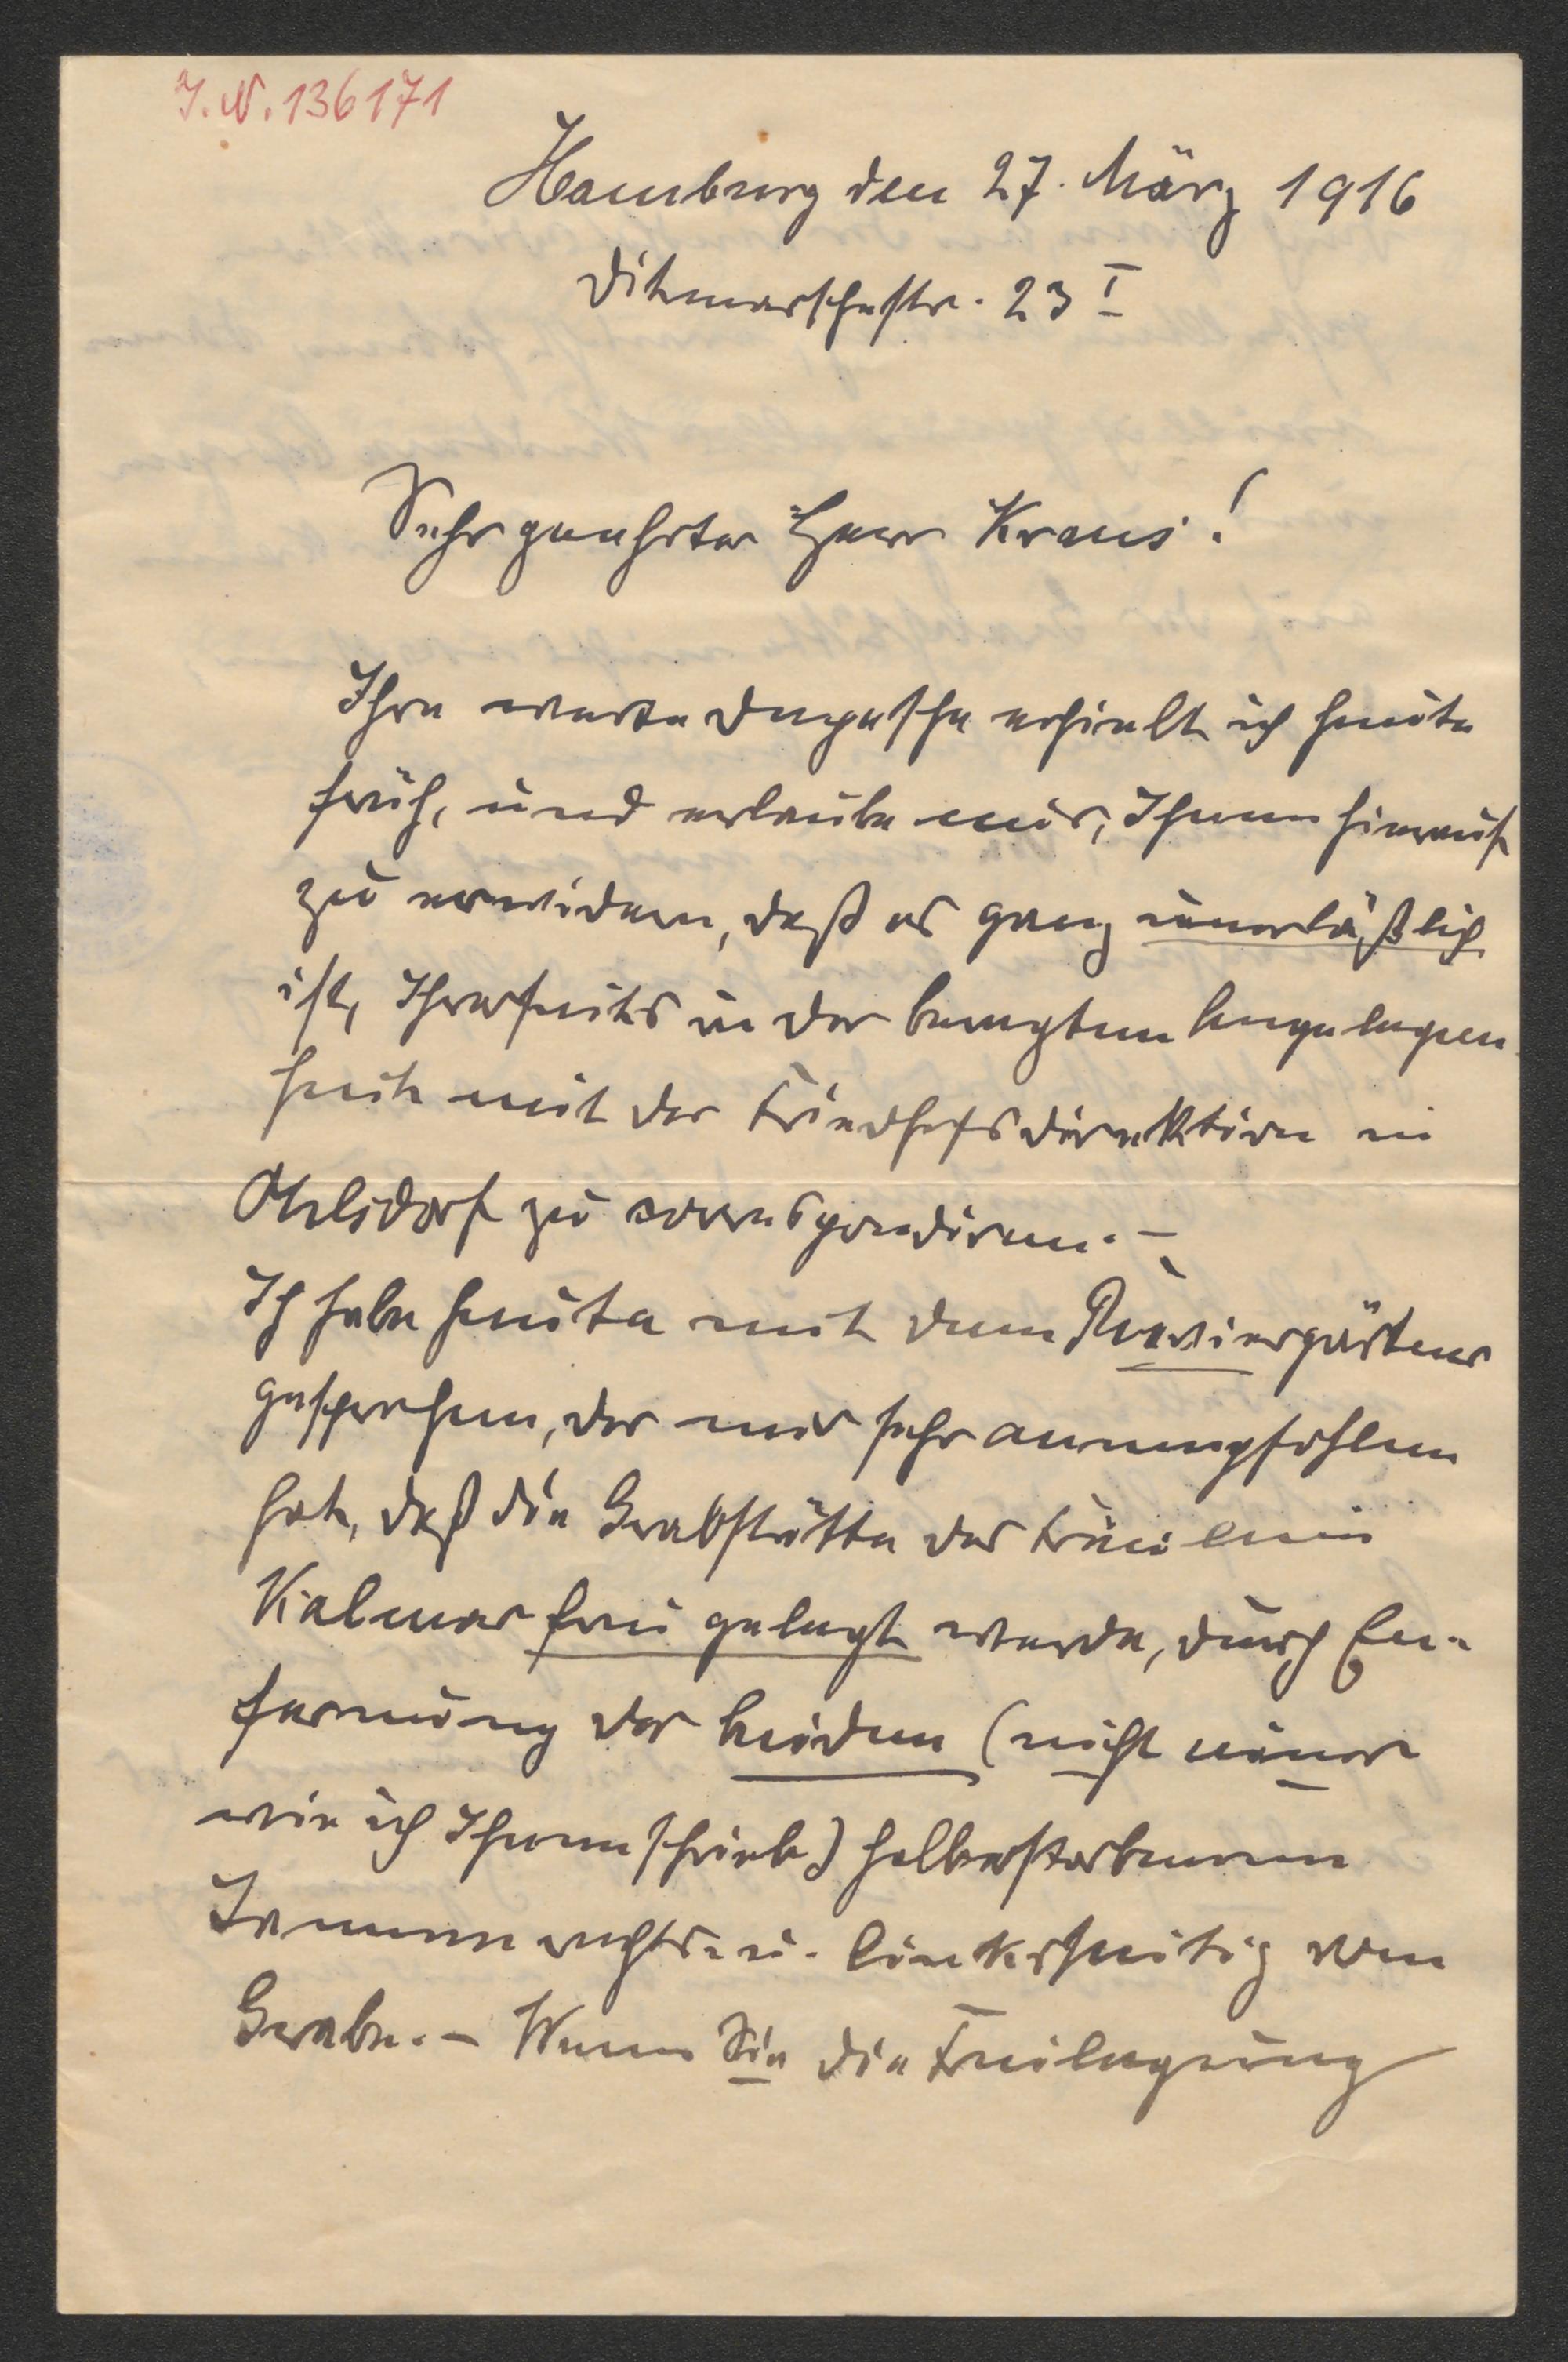 I.N. 136171
Hamburg den 27. März 1916
Dithmarschestr. 23 I
Sehr geehrter Herr Kraus!
Ihre werte Depesche erhielt ich heute
früh, und erlaube mir, Ihnen hierauf
zu erwidern, daß es ganz unerläßlich
ist, Ihrerseits in der bewegten Angelegen
heit mit der Friedhofsdirektion in
Ohlsdorf zu correspondiren. –
Ich habe heute mit dem Reviergärtner
gesprochen, der mir sehr anempfohlen
hat, daß die Grabstätte des Fräulein
Kalmar frei gelegt werde, durch En-
fernung der beiden (nicht einer
wie ich Ihnen schrieb) halberstorbenen
Tannen rechts- u. linkerseitig vom
Grabe. – Wenn Sie die Freilegung